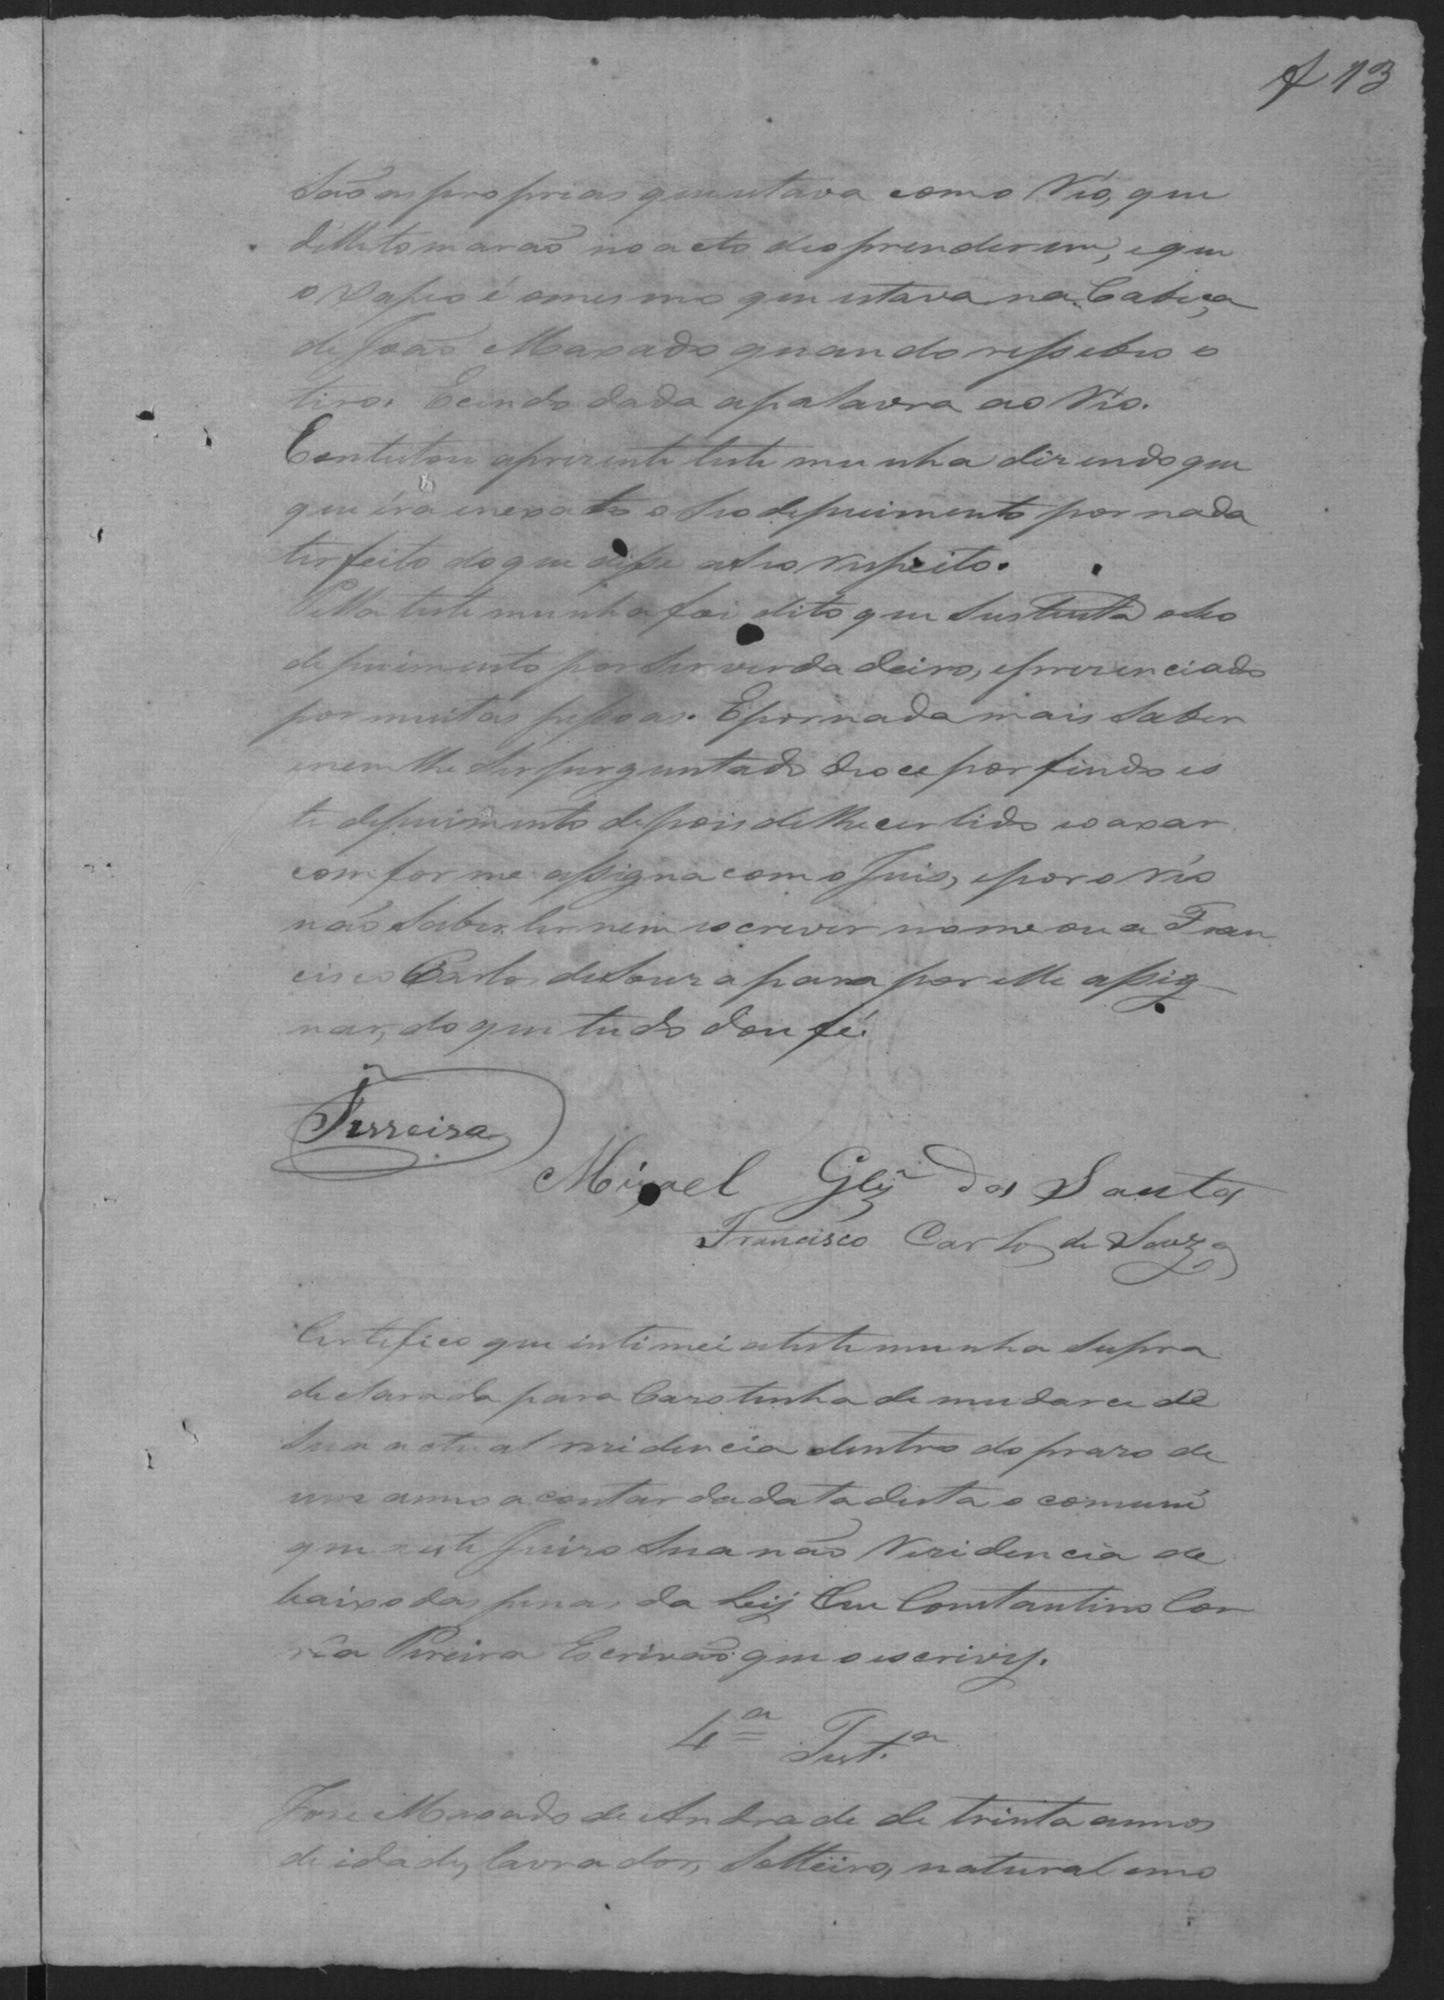 f 13
São as proprias que estava com o Réo, que
délle tomarão no acto de o prenderem, e que
o Xapeo é o mesmo que estava na Cabeça
de João Maxado quando ressebeo o
tiro. E cendo dada a palavra ao Réo.
Contestou a prezente testemunha dizendo que
que éra inexato o seo depuimento por nada
ter feito do que disse a seo respeito.
Pella testemunha foi dito que sustenta o seo
depuimento por ser verdadeiro, e prezenciado
por muitas pessoas. E por nada mais saber
e nem lhe ser perguntado deo ce por findo es
te depuimento depois de lhe cer lido e o axar
comforme assigna com o Juis, e por o réo
não saber ler nem escrever nomeou a Fran
cisco Carlos de Souza para por elle assig
nar, do que tudo dou fé.
Ferreira
Miguel Glz dos Santos
Francisco Carlos de Souza
Certefico que intimei a testemunha supra
declarada para Caso tenha de mudarce de
sua actual rezidencia dentro do prazo de
um anno a contar da data desta o comuni
que a este Juizo sua não Rezidencia de
baixo das penas da Leij Eu Constantino Cor
rêa Pereira Escrivão que o escrivy.
4ª Test.ª
Jose Maxado de Andrade de trinta annos
de idade, lavrador, Solteiro, natural e mo